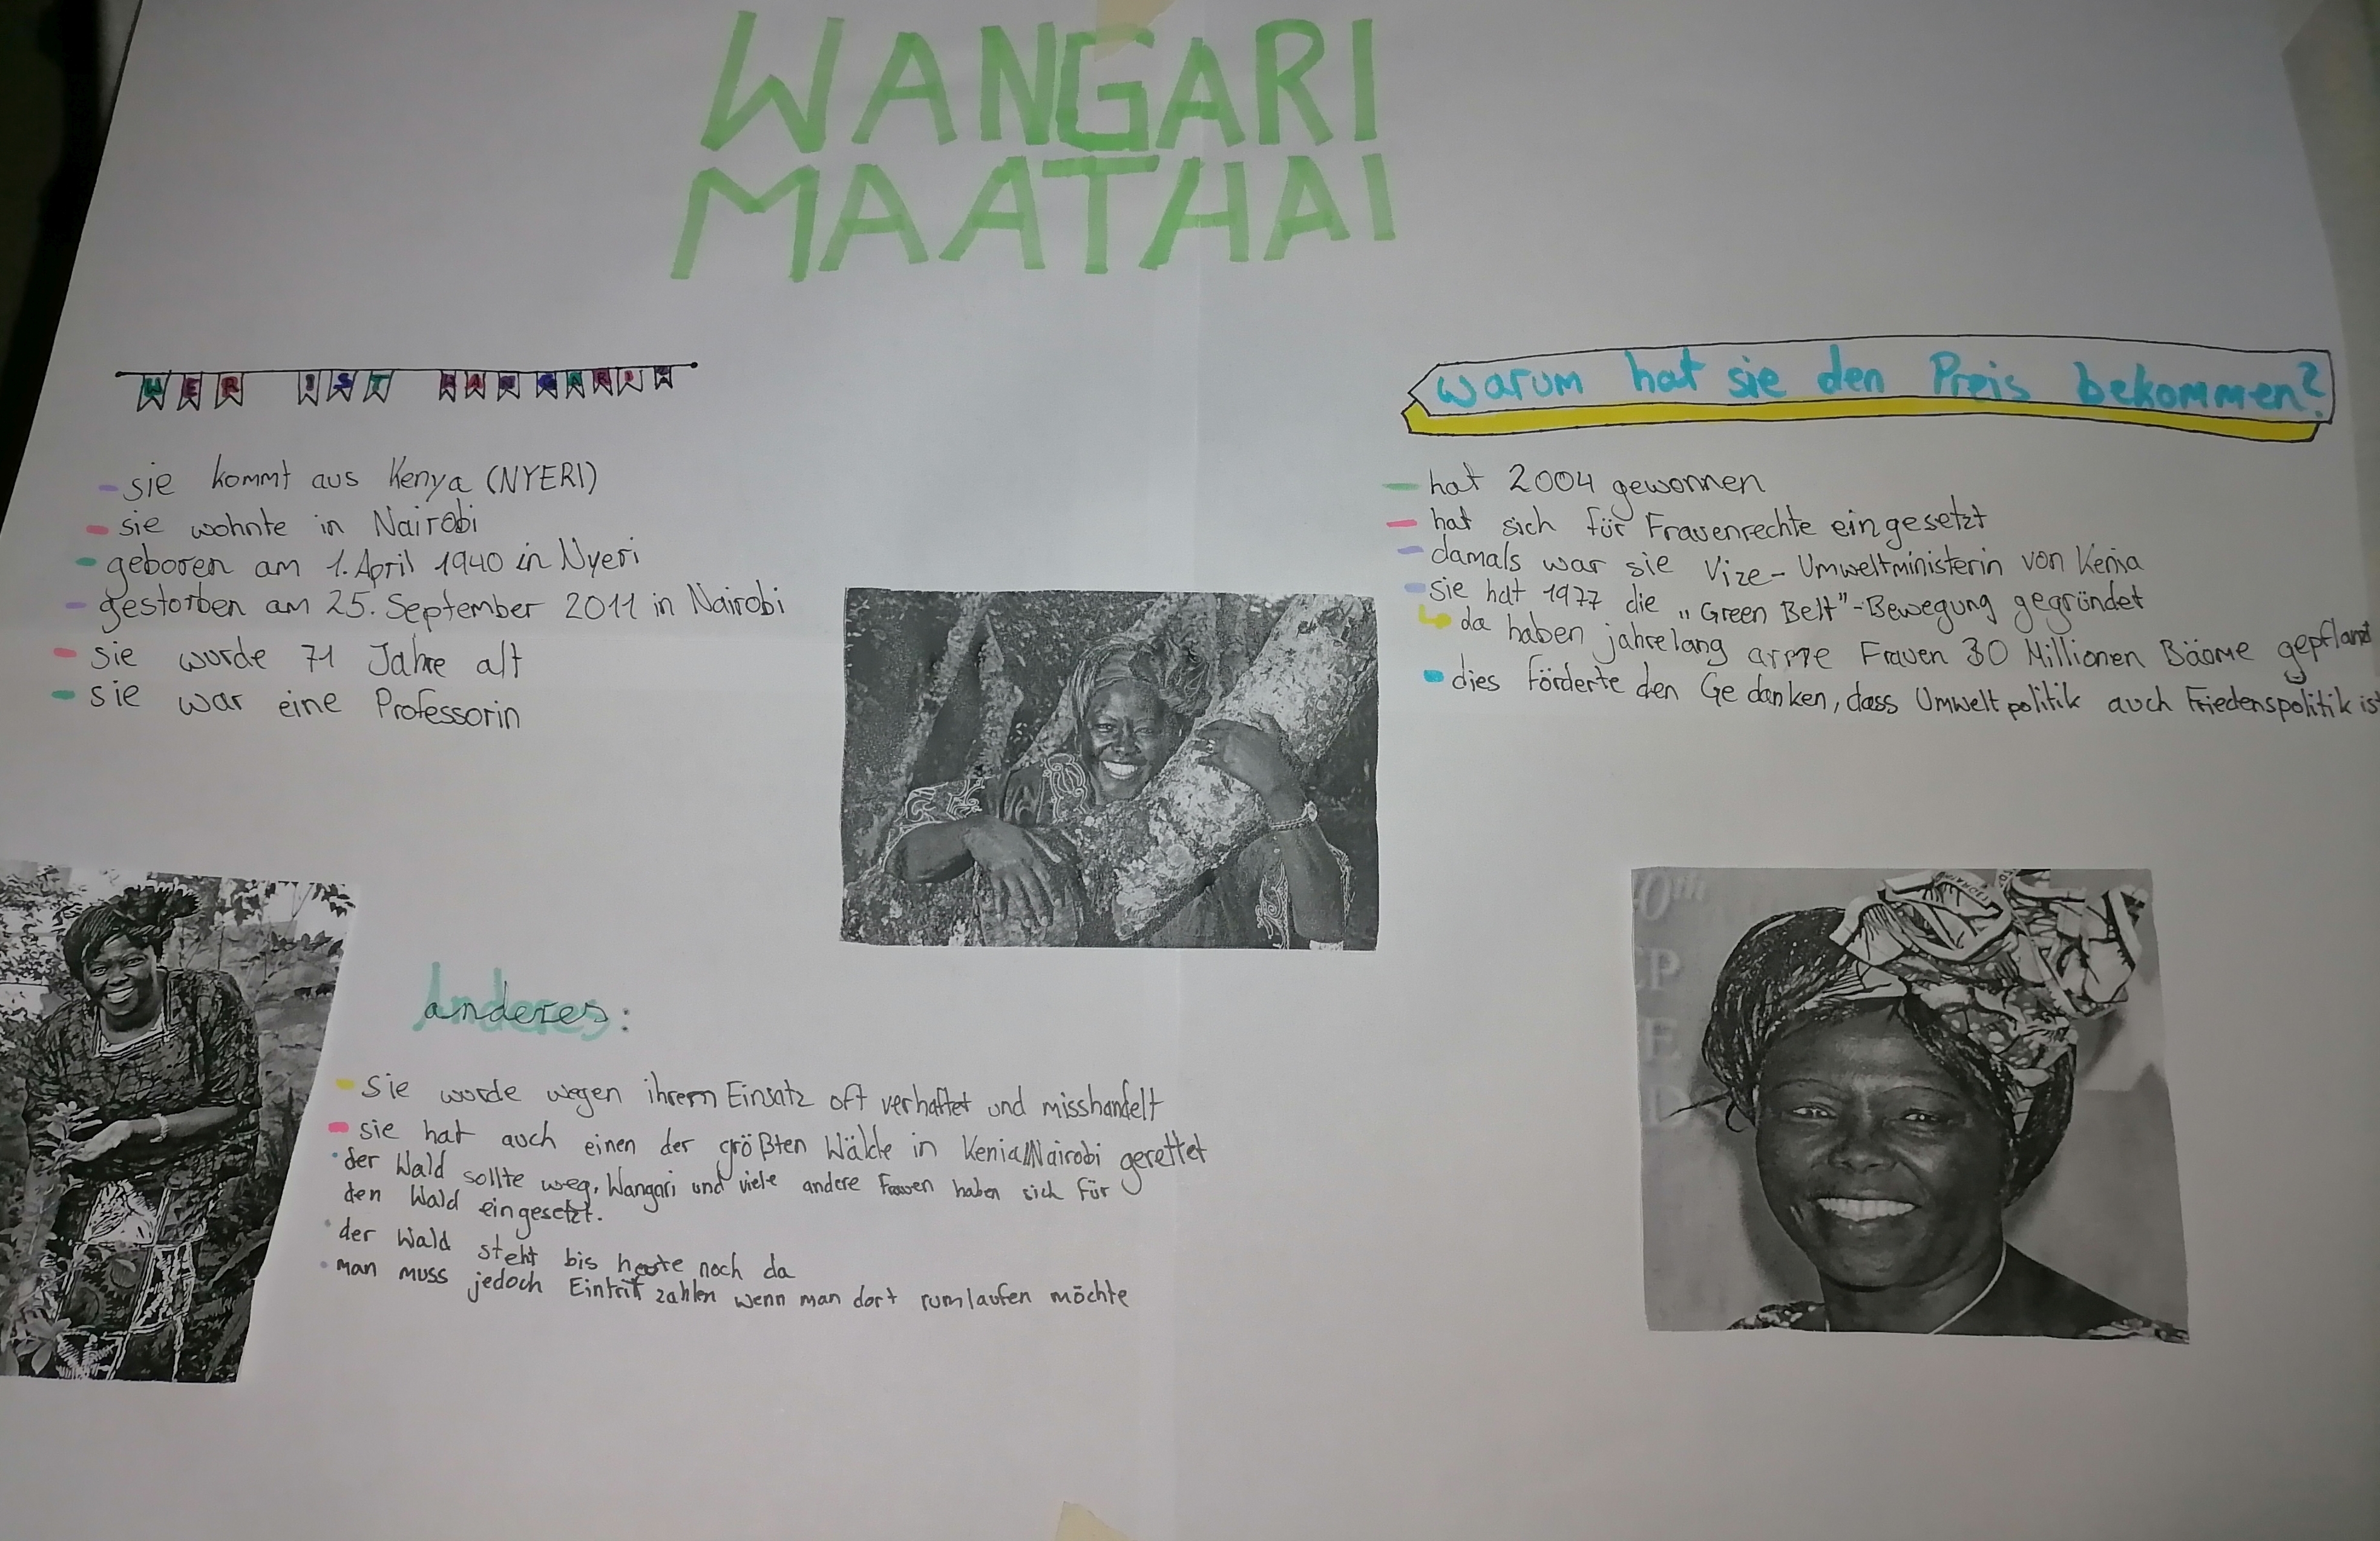 WANGARI
MAATHAI
WER IST WANGARI
sie kommt aus Kenya (NYERI)
sie wohnte in Nairobi
geboren am 1. April 1940 in Nyeri
gestorben am 25. September 2011 in Nairobi
sie wurde 71 Jahre alt
sie war eine Professorin
warum hat sie den Preis bekommen?
hat 2004 gewonnen
hat sich für Frauenrechte eingesetzt
damals war sie Vize-Umweltministerin von Kenia
sie hat 1977 die „Green Belt"-Bewegung gegründet
da haben jahrelang arme Frauen 30 Millionen Bäume gepflanzt
dies förderte den Gedanken, dass Umweltpolitik auch Friedenspolitik ist
anderes:
sie wurde wegen ihrem Einsatz oft verhaftet und misshandelt
sie hat auch einen der größten Wälde in Kenia/Nairobi gerettet
der Wald sollte weg. Wangari und viele andere Frauen haben sich für
den Wald eingesetzt.
der Wald steht bis heute noch da
man muss jedoch Eintritt zahlen wenn man dort rumlaufen möchte
0th
CP
E